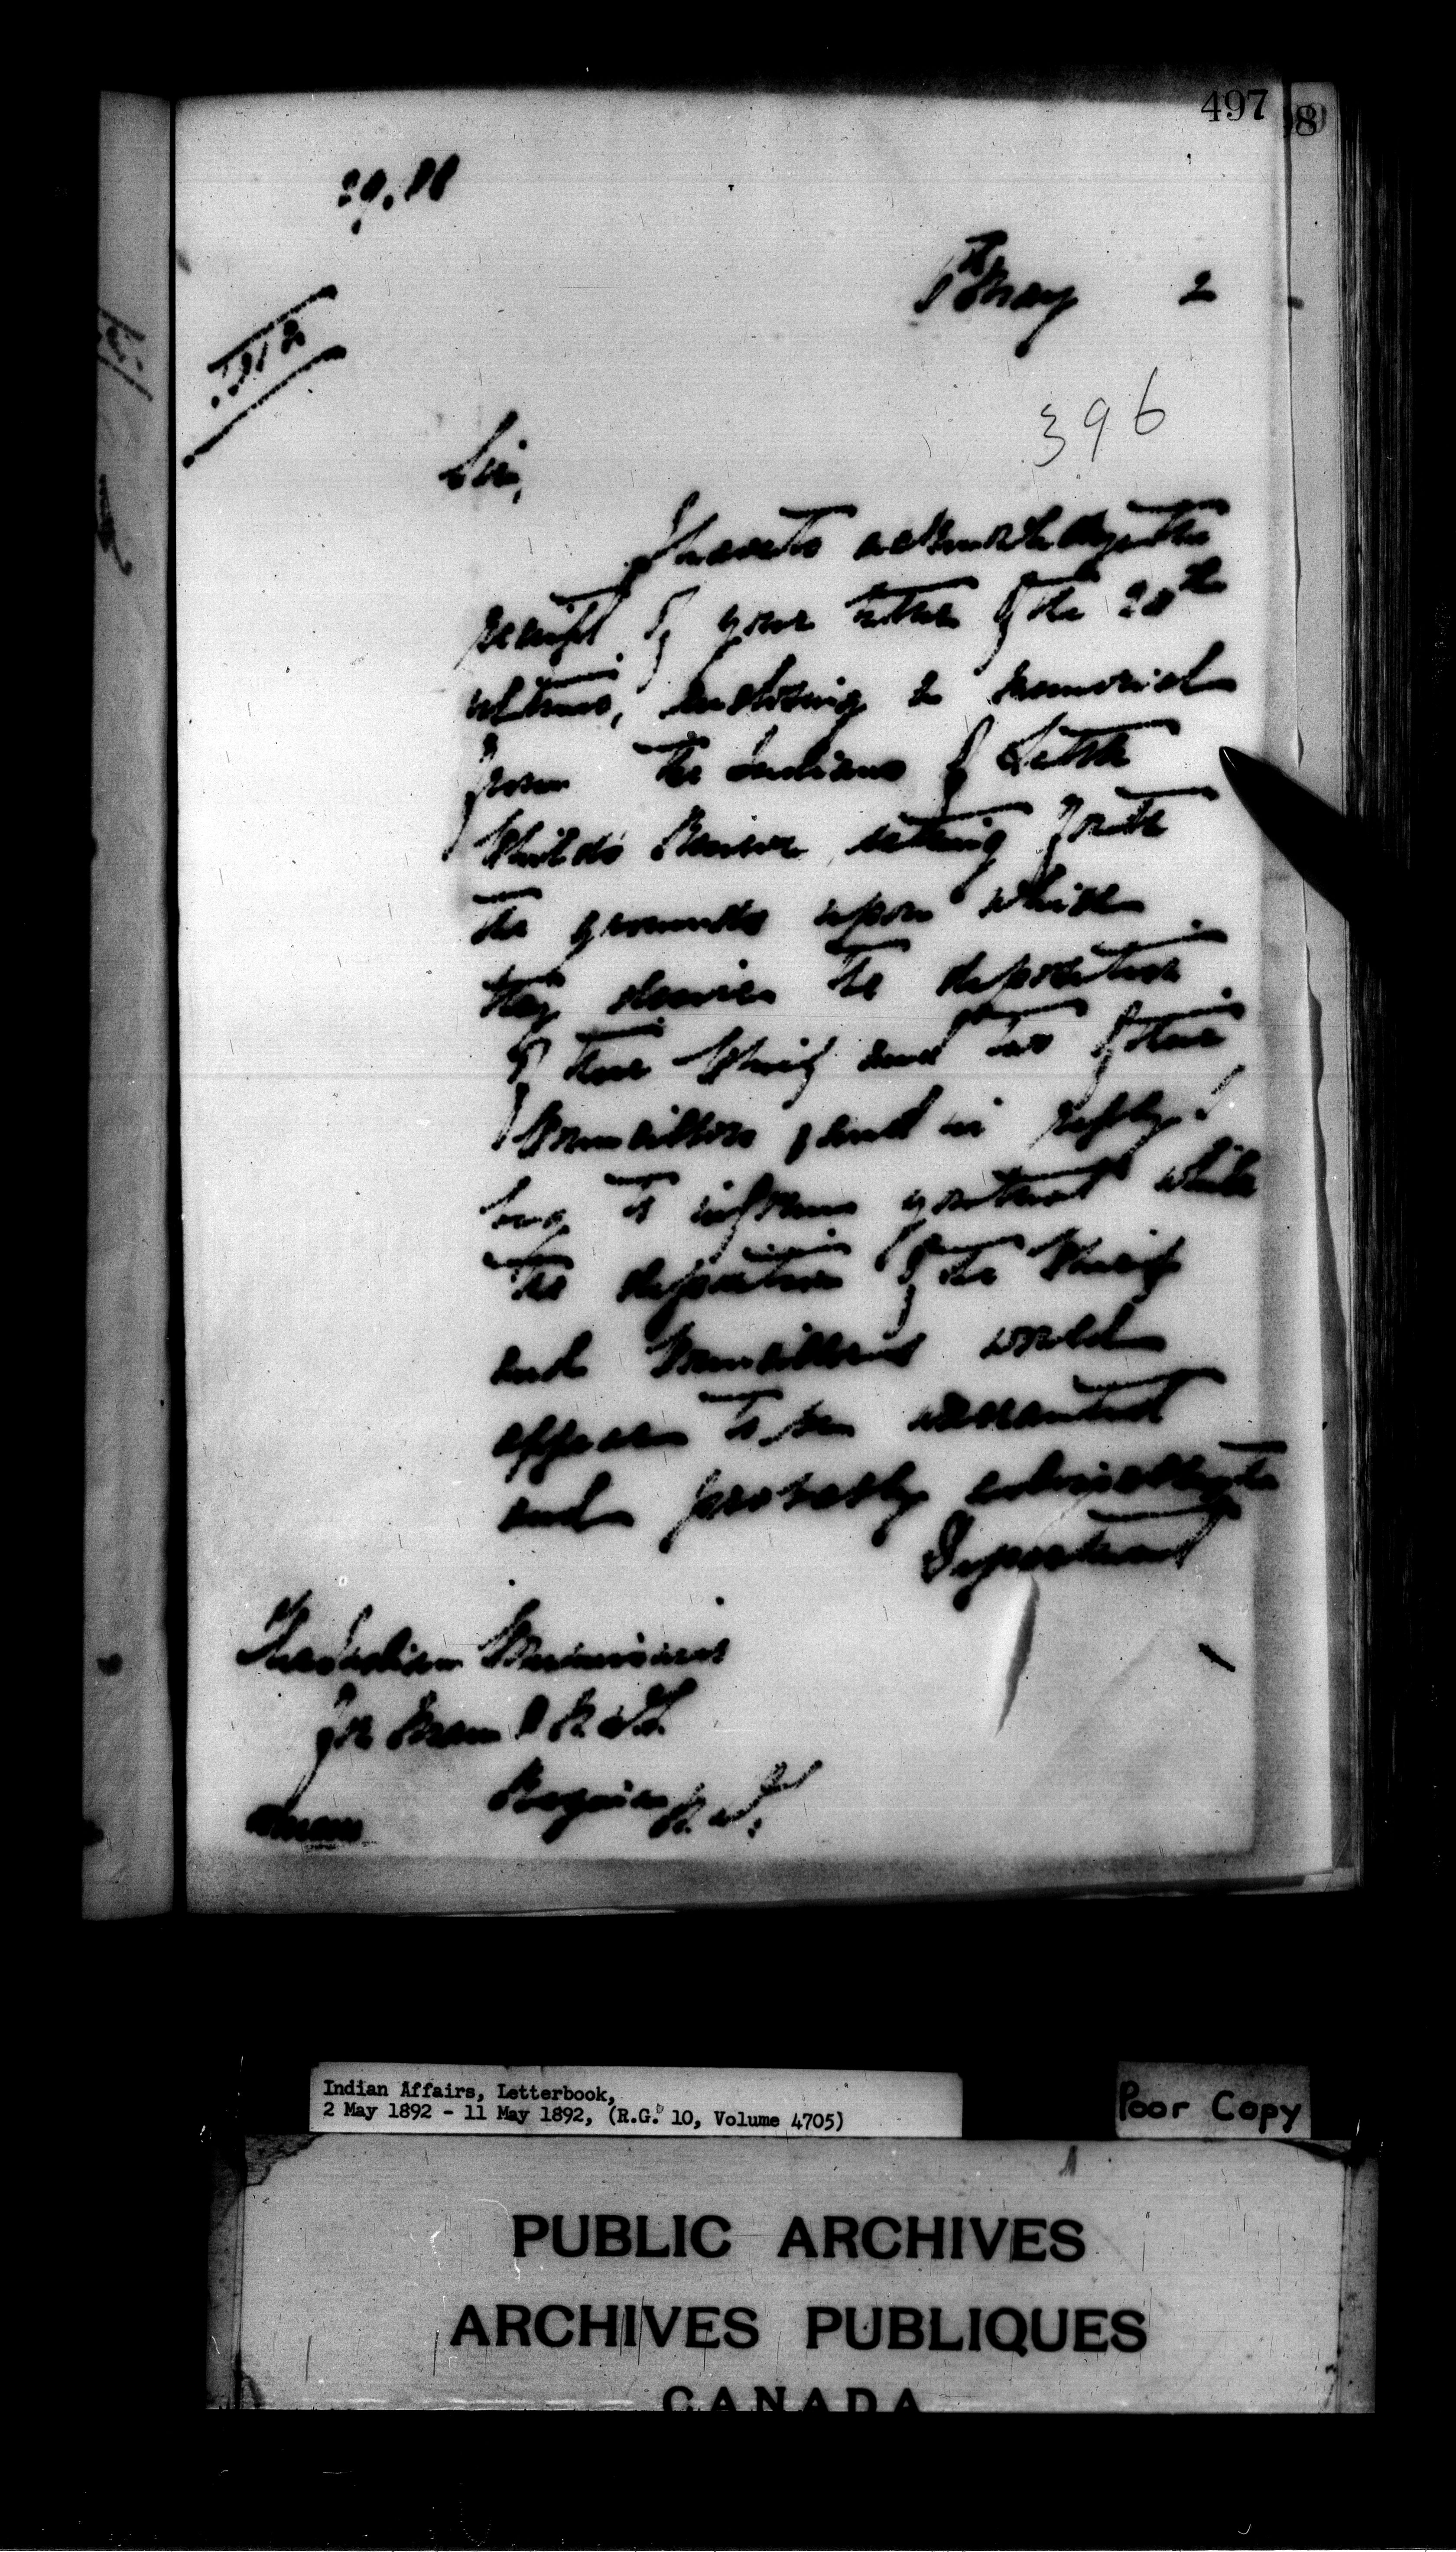 497
May 2
396
Sir,
I have to acknowledge the
receipt of your letter of the 20th
ultimo, enclosing a memorial
from the Indians of Little
Child's Reserve setting forth
the grounds upon which
they desire the deposition
of their Chief and two of their
Councillors, and in reply I
beg to inform you that while
the deposition of the Chief
and Councillors would
appear to be warranted
and probably advisable, the
Department
The Indian Commissioner
for Man &
Regina
Indian Affairs, Letterbook,
2 May 1892 - 11 May 1892, (R.G. 10, Volume 4705)
Poor Copy
PUBLIC ARCHIVES
ARCHIVES PUBLIQUES
CANADA